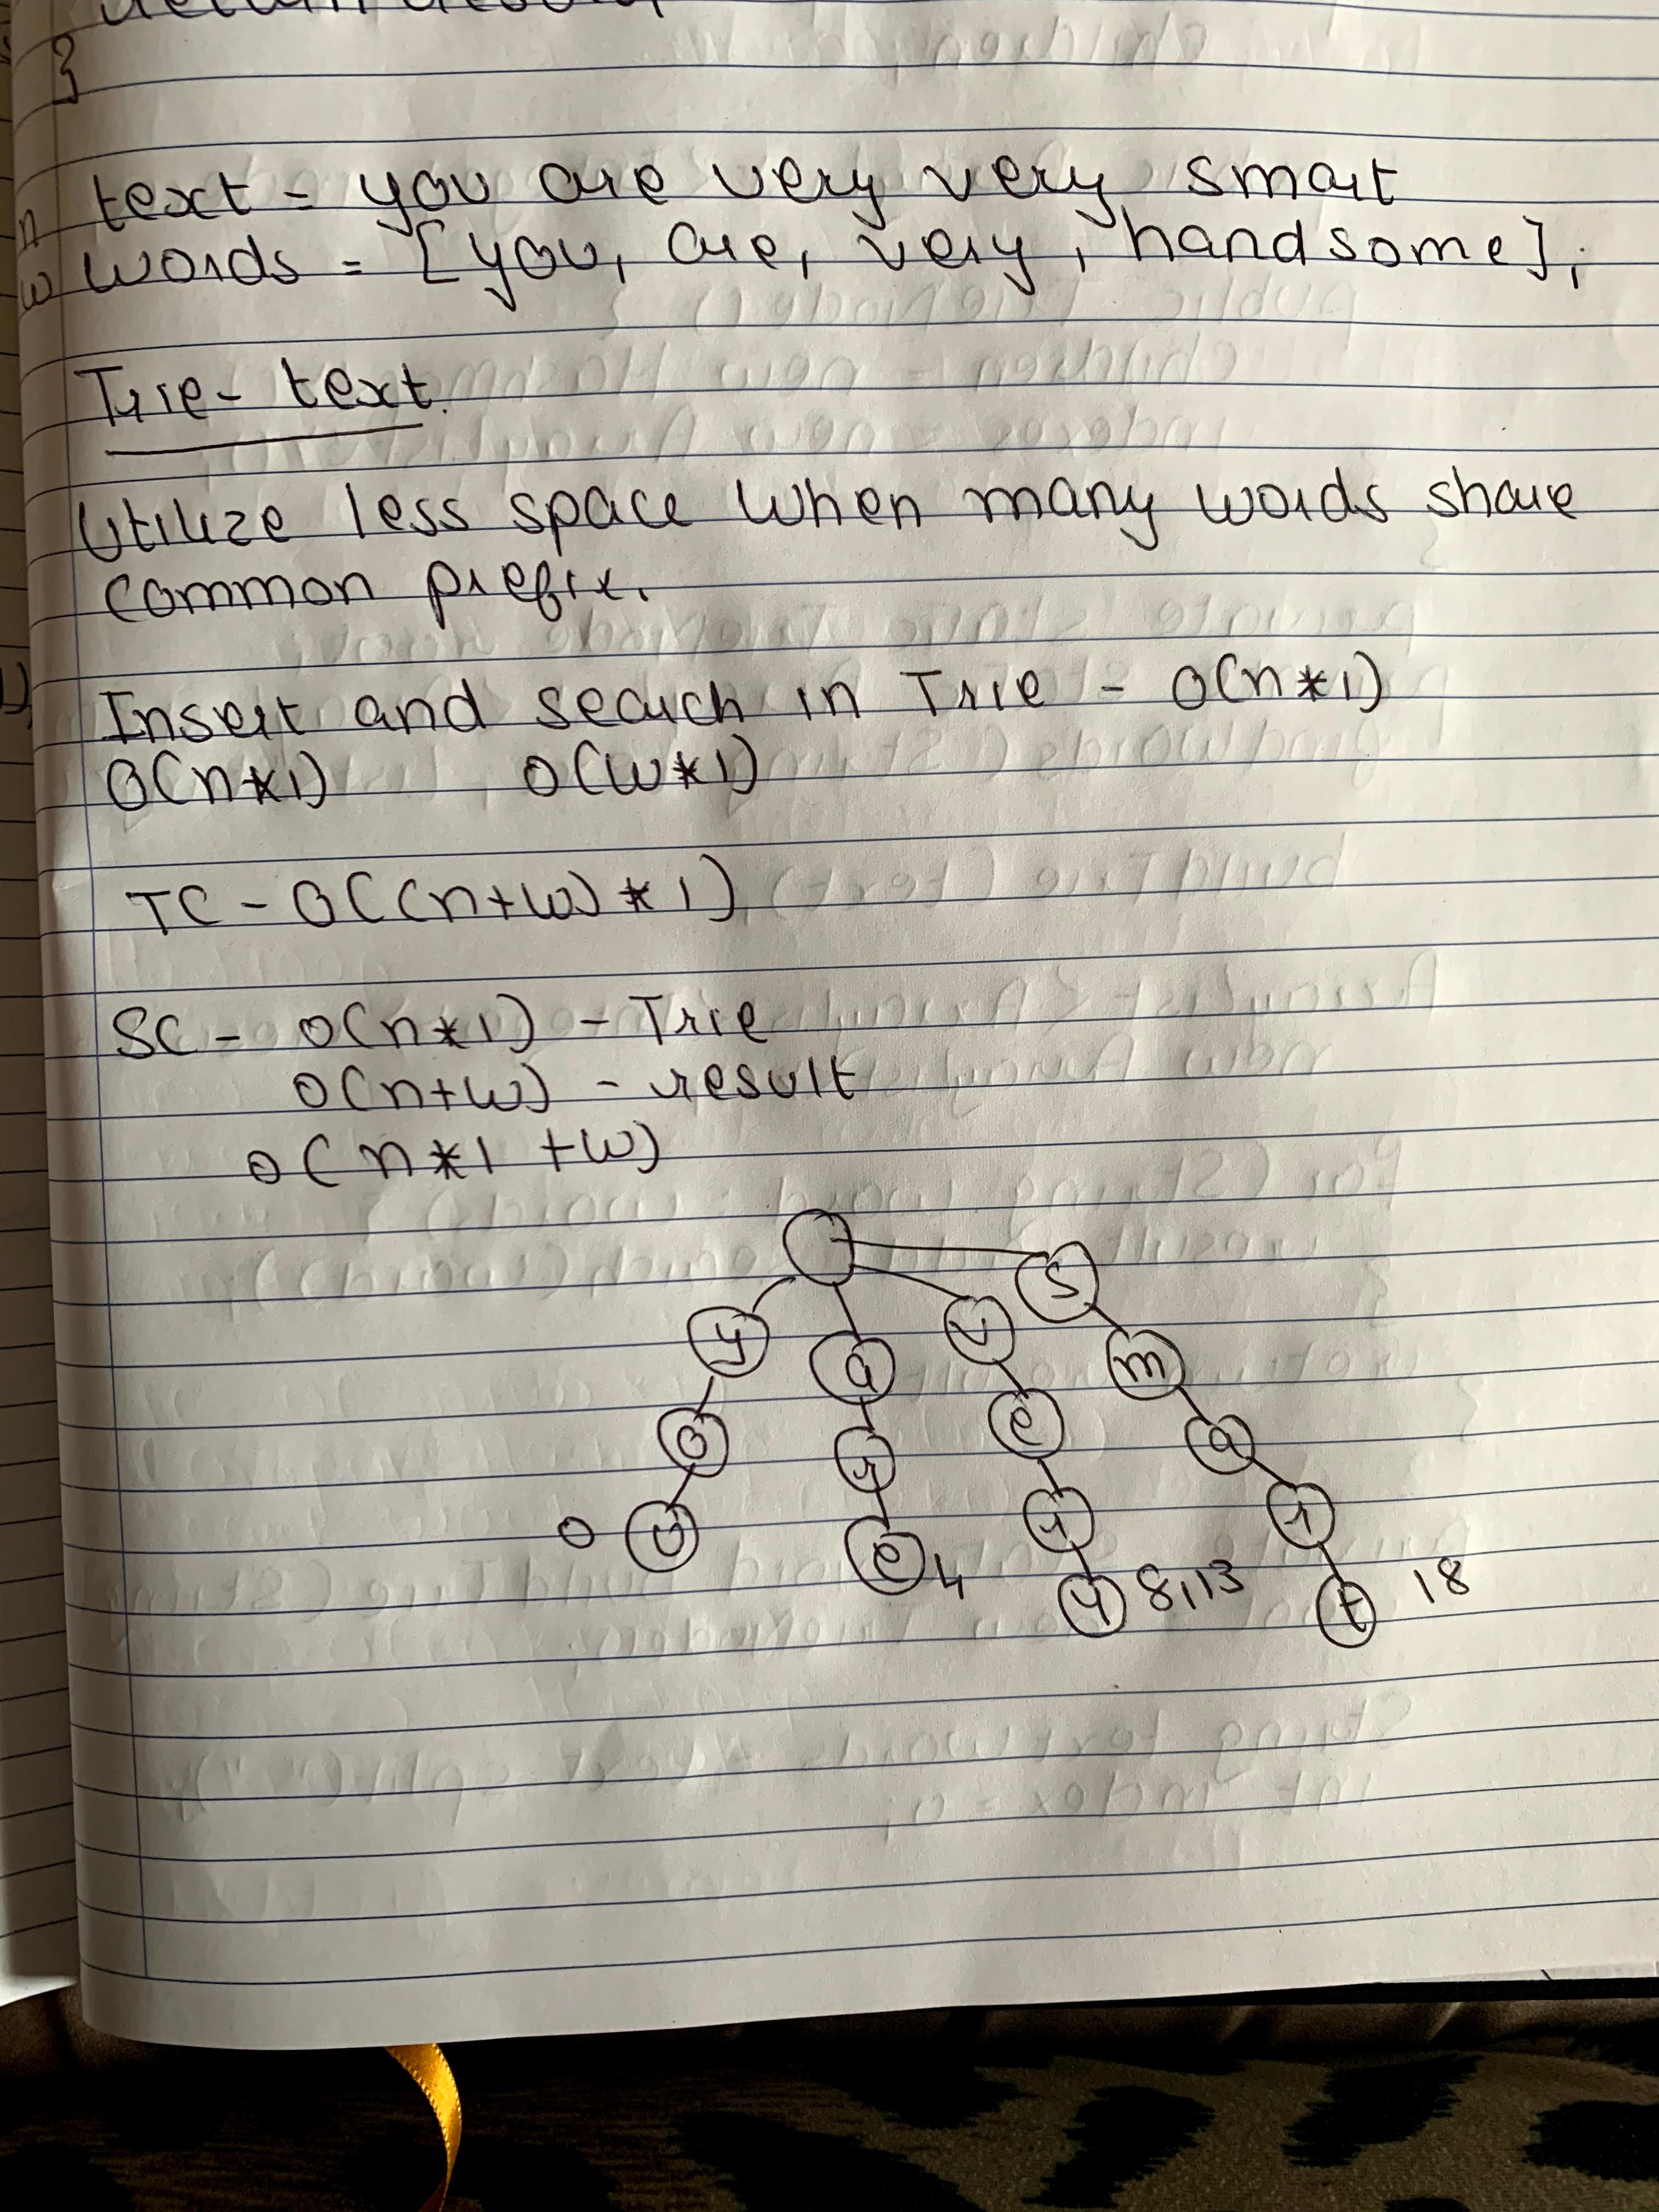 }
n text = you are very very smart
w words = [you, are, very, handsome];
Trie - text.
Utilize less space when many words share
common prefix.
Insert and search in Trie - O(n*l)
O(n*l) O(w*l)
TC - O((n+w)*l)
SC - O(n*l) - Trie
O(n+w) - result
O(n*l +w)
s
y v
a m
o e a
r
u r r
0 e 4
y 8,13 t 18